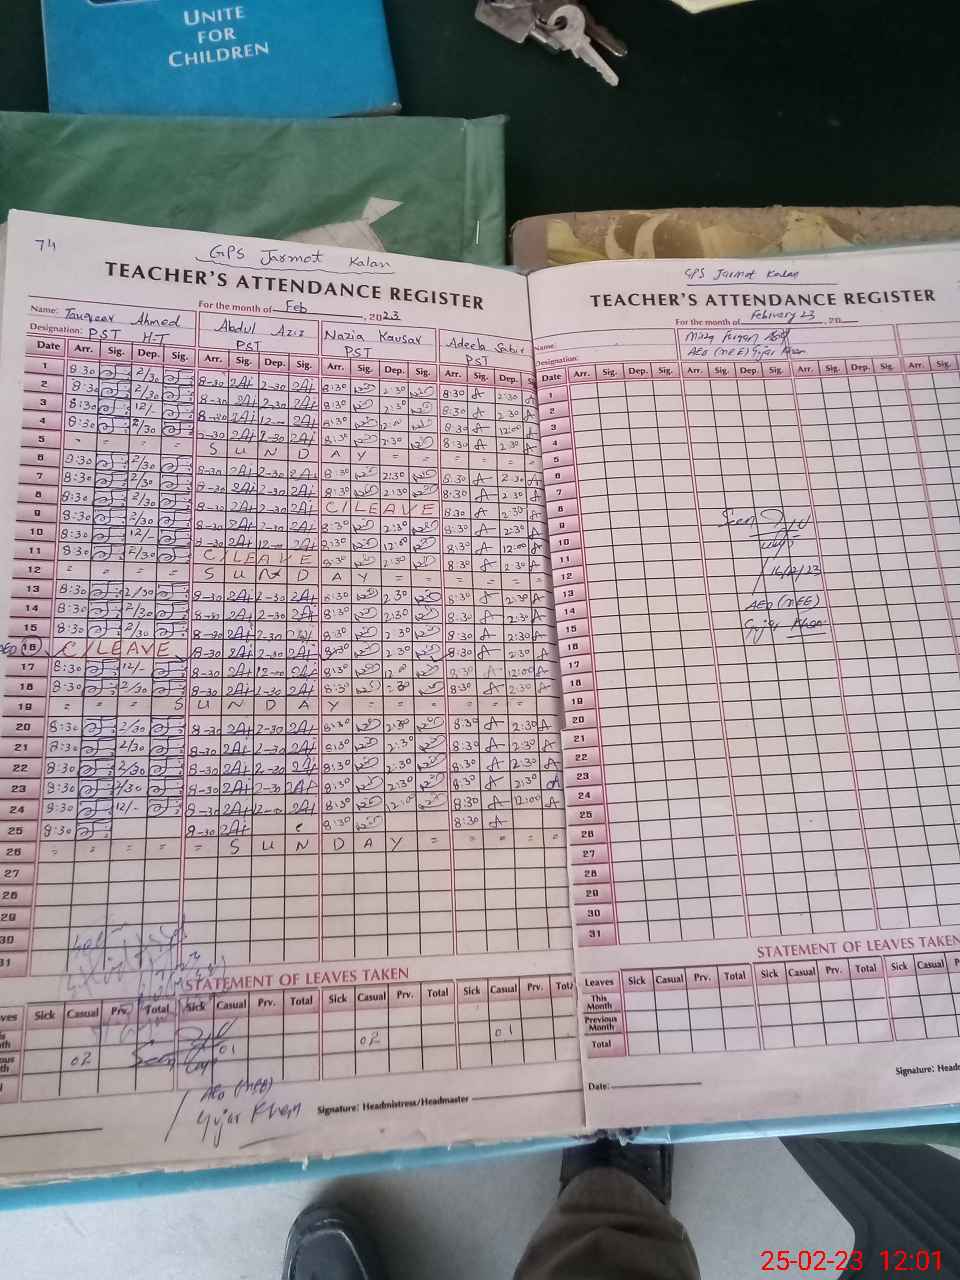 UNITE
FOR
CHILDREN
74
GPS Jarmot Kalan
TEACHER'S ATTENDANCE REGISTER
For the month of Feb, 2023
Name: Tauqeer Ahmed Abdul Aziz Nazia Kausar Adeela Sabir
Designation: PST H-T PST PST PST
Date Arr. Sig. Dep. Sig. Arr. Sig. Dep. Sig. Arr. Sig. Dep. Sig. Arr. Sig. Dep.
1 8:30 2/30 8-30 2-30 8:30 2:30 8:30 2:30
2 8:30 2/30 8-30 2-30 8:30 2:30 8:30 2:30
3 8:30 12/- 8-30 12-00 8:30 12:00 8:30 12:00
4 8:30 2/30 8-30 2-30 8:30 2:30 8:30 2:30
5 = = = S U N D A Y = = = = = =
6 8:30 2/30 8-30 2-30 8:30 2:30 8:30 2:30
7 8:30 2/30 8-30 2-30 8:30 2:30 8:30 2:30
8 8:30 2/30 8-30 2-30 C/LEAVE 8:30 2:30
9 8:30 2/30 8-30 2-30 8:30 2:30 8:30 2:30
10 8:30 12/- 8-30 12-00 8:30 12:00 8:30 12:00
11 8:30 2/30 C/LEAVE 8:30 2:30 8:30 2:30
12 = = = = S U N D A Y = = = = = =
13 8:30 2/30 8-30 2-30 8:30 2:30 8:30 2:30
14 8:30 2/30 8-30 2-30 8:30 2:30 8:30 2:30
15 8:30 2/30 8-30 2-30 8:30 2:30 8:30 2:30
16 C/LEAVE 8-30 2-30 8:30 2:30 8:30 2:30
17 8:30 12/- 8-30 12-00 8:30 8:30 12:00
18 8:30 2/30 8-30 2-30 8:30 2:30 8:30 2:30
19 = = = S U N D A Y = = = = = = =
20 8:30 2/30 8-30 2-30 8:30 2:30 8:30 2:30
21 8:30 2/30 8-30 2-30 8:30 2:30 8:30 2:30
22 8:30 2/30 8-30 2-30 8:30 2:30 8:30 2:30
23 8:30 2/30 8-30 2-30 8:30 2:30 8:30 2:30
24 8:30 12/- 8-30 12-00 8:30 12:00 8:30 12:00
25 8:30 8-30 8:30 8:30
26 = = = = = S U N D A Y = = = = =
27
28
29
30
31
STATEMENT OF LEAVES TAKEN
Sick Casual Prv. Total Sick Casual Prv. Total Sick Casual Prv. Total Sick Casual Prv.
02 01 02 01
Seen
AEO (MEE)
Gujar Khan
Signature: Headmistress/Headmaster
GPS Jarmot Kalan
TEACHER'S ATTENDANCE REGISTER
For the month of February 23, 20
Name:
Designation: AEO (MEE) Gujar Khan
Date Arr. Sig. Dep. Sig. Arr. Sig. Dep. Sig. Arr. Sig. Dep. Sig. Arr. Sig.
1
2
3
4
5
6
7
8
9
10
11
12
13
14
15
16
17
18
19
20
21
22
23
24
25
26
27
28
29
30
31
Seen
16/2/23
AEO (MEE)
Gujar Khan
STATEMENT OF LEAVES TAKEN
Leaves Sick Casual Prv. Total Sick Casual Prv. Total Sick Casual Prv.
This Month
Previous Month
Total
Date:
Signature:
25-02-23 12:01